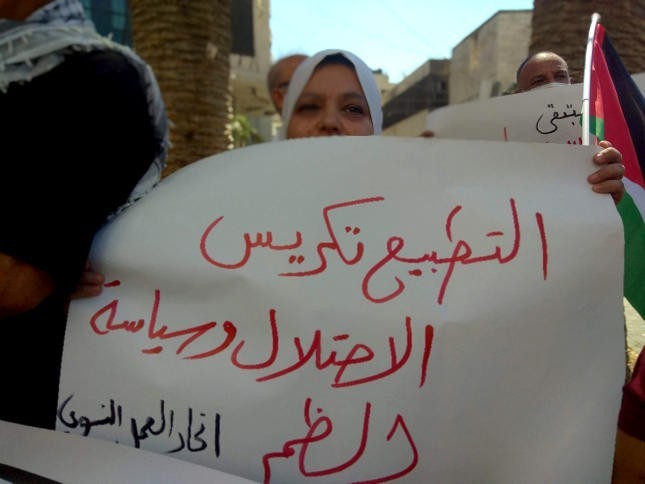 التطبيع تكريس
الاحتلال وسياسة
الظم
اتحاد العمل النسوي